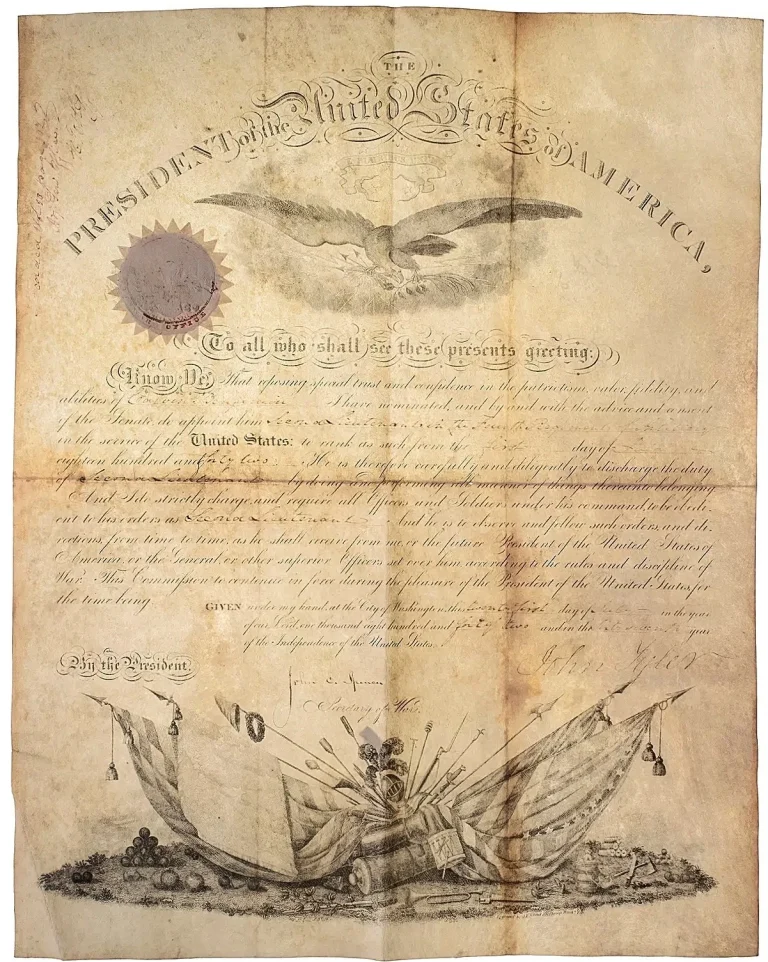 THE
PRESIDENT of the United States of AMERICA,
OFFICE
To all who shall see these presents greeting:
Know Ye, That reposing special trust and confidence in the patriotism, valor, fidelity, and
abilities of I have nominated, and by and with the advice and consent
of the Senate, do appoint him Second Lieutenant in the Fourth Regiment of
in the service of the United States: to rank as such from the first day of
eighteen hundred and forty two. He is therefore carefully and diligently to discharge the duty
of Second Lieutenant by doing and performing all manner of things thereunto belonging.
And I do strictly charge, and require all Officers and Soldiers under his command, to be obedi-
ent to his orders as Second Lieutenant And he is to observe and follow such orders, and di-
rections, from time to time, as he shall receive from me, or the future President of the United States of
America, or the General, or other superior Officers set over him, according to the rules and discipline of
War. This Commission to continue in force during the pleasure of the President of the United States, for
the time being.
GIVEN under my hand, at the City of Washington, this twenty first day of in the year
of our Lord, one thousand eight hundred and forty two and in the year
of the Independence of the United States.
By the President,
John Tyler
John C. Spencer
Secretary of War.